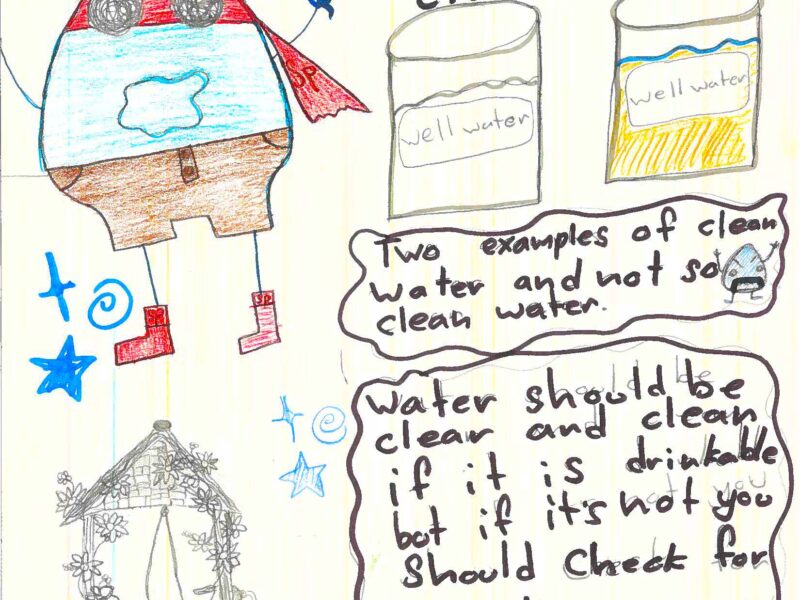 Sp
well water
well water
Two examples of clean
water and not so
clean water.
SP
SP
Water should be
clear and clean
if it is drinkable
but if it's not you
should check for